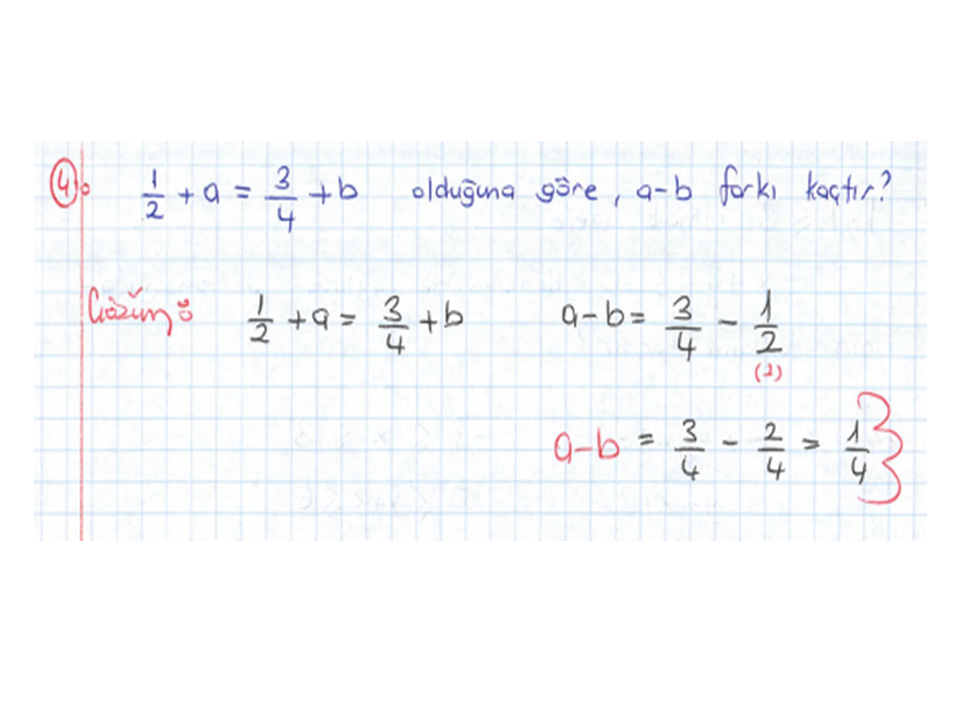 4: 1/2 + a = 3/4 + b olduğuna göre, a-b farkı kaçtır?
Çözüm: 1/2 + a = 3/4 + b a-b = 3/4 - 1/2
(2)
a-b = 3/4 - 2/4 = 1/4